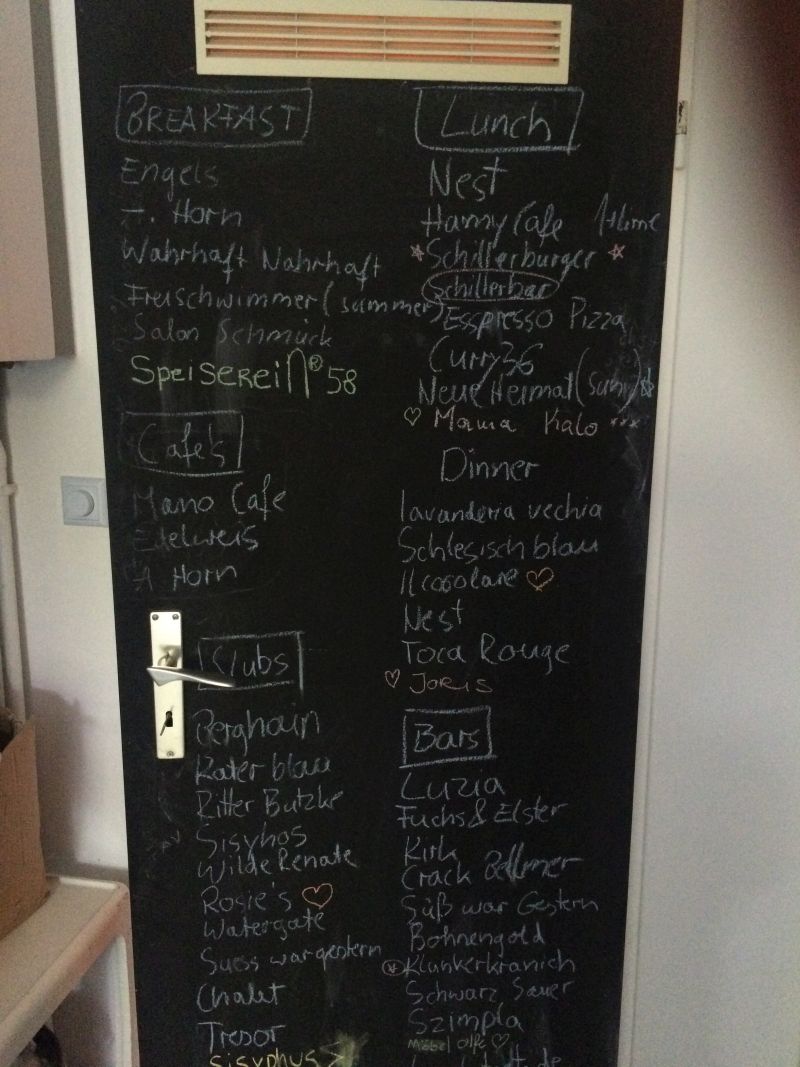 BREAKFAST
Engels
A. Horn
Wahrhaft Nahrhaft
Freischwimmer (summer)
Salon Schmück
SPEISEREIN® 58
Cafe's
Mano Cafe
Edelweis
A Horn
Clubs
Berghain
Kater blau
Ritter Butzke
Sisyhos
Wilde Renate
Rosie's ♡
Watergate
Suess war gestern
Chalet
Tresor
sisyphus >
Lunch
Nest
Hanny Cafe 1+lime
☆ Schillerburger ☆
Schillerbar
Esspresso Pizza
Curry 36
Neue Heimat (Sun) ☆
♡ Mama Kalo ***
Dinner
lavanderia vechia
Schlesisch blau
Il casolare ♡
Nest
Toca Rouge
♡ Joris
Bars
Luzia
Fuchs & Elster
Kirk
Crack Bellmer
Süß war Gestern
Bohnengold
☆ Klunkerkranich
Schwarz Sauer
Szimpla
Möbel Olfe ♡